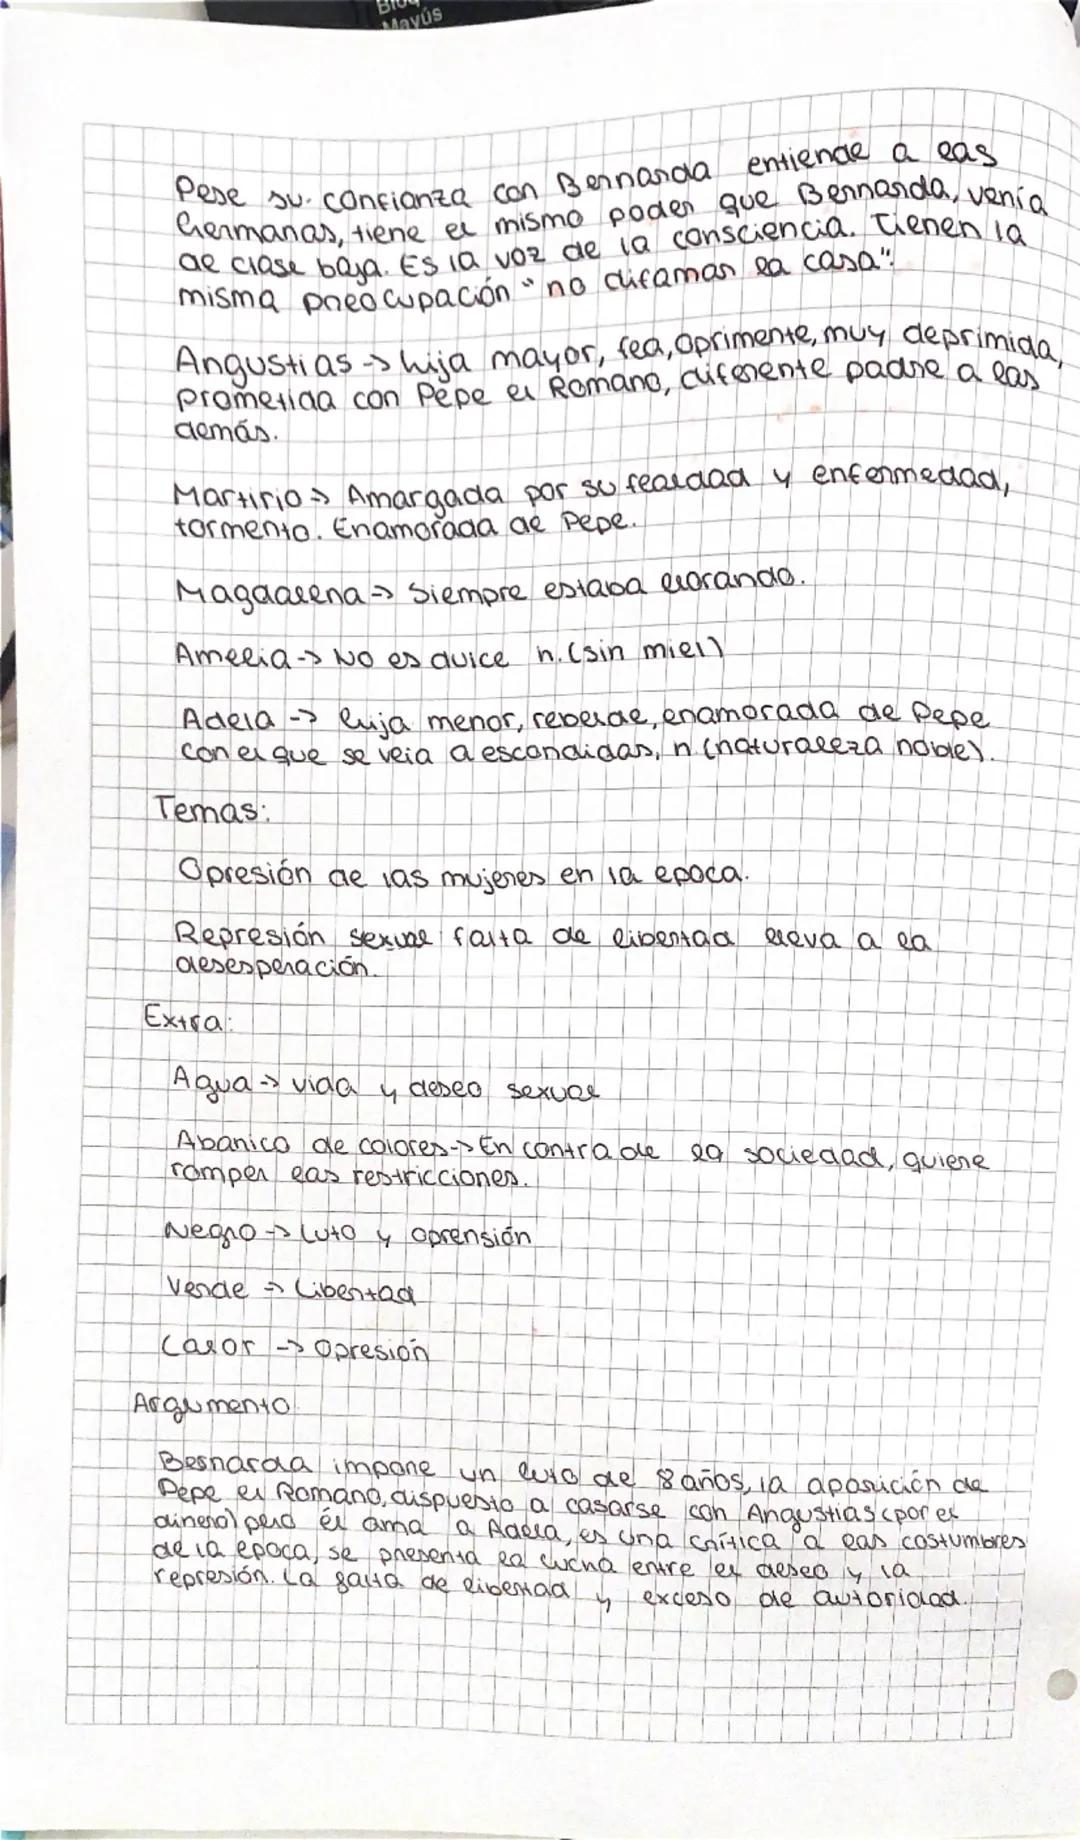 Bloq
Mayús
Pese su confianza con Bernarda entiende a las
hermanas, tiene el mismo poder que Bernarda, venía
de clase baja. Es la voz de la consciencia. Tienen la
misma preocupación "no difamar la casa".
Angustias -> hija mayor, fea, oprimente, muy deprimida,
prometida con Pepe el Romano, diferente padre a las
demás.
Martirio -> Amargada por su fealdad y enfermedad,
tormento. Enamorada de Pepe.
Magdalena -> Siempre estaba llorando.
Amelia -> No es dulce n. (sin miel)
Adela -> hija menor, rebelde, enamorada de Pepe
con el que se veia a escondidas, n (naturaleza noble).
Temas:
Opresión de las mujeres en la epoca.
Represión sexual falta de libertad lleva a la
desesperación.
Extra:
Agua -> vida y deseo sexual
Abanico de colores -> En contra de la sociedad, quiere
romper las restricciones.
Negro -> Luto y oprensión
Verde -> Libertad
Calor -> Opresión
Argumento
Bernarda impone un luto de 8 años, la aparición de
Pepe el Romano, dispuesto a casarse con Angustias (por el
dinero) pero él ama a Adela, es una crítica a las costumbres
de la epoca, se presenta la lucha entre el deseo y la
represión. La falta de libertad y exceso de autoridad.